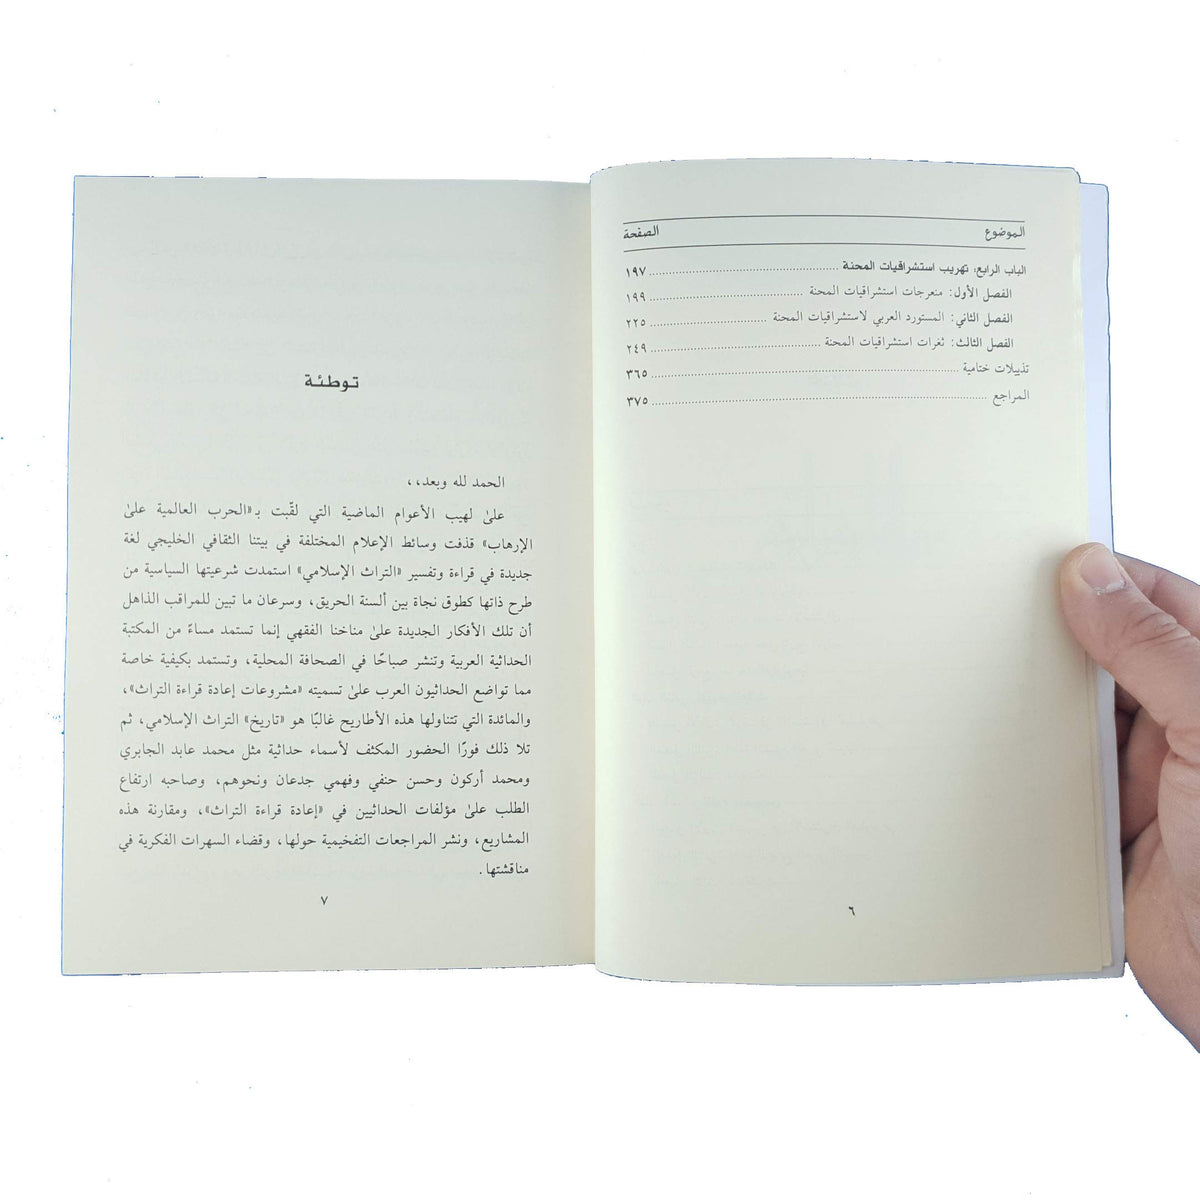 الموضوع الصفحة
الباب الرابع، تهريب استشراقيات المحنة ١٩٧
الفصل الأول: منعرجات استشراقيات المحنة ١٩٩
الفصل الثاني: المستورد العربي لاستشراقيات المحنة ٢٢٥
الفصل الثالث: ثغرات استشراقيات المحنة ٢٤٩
تذييلات ختامية ٣٦٥
المراجع ٣٧٥
٦
توطئة
الحمد لله وبعد،،
علىٰ لهيب الأعوام الماضية التي لقّبت بـ«الحرب العالمية علىٰ
الإرهاب» قذفت وسائط الإعلام المختلفة في بيتنا الثقافي الخليجي لغة
جديدة في قراءة وتفسير «التراث الإسلامي» استمدت شرعيتها السياسية من
طرح ذاتها كطوق نجاة بين ألسنة الحريق، وسرعان ما تبين للمراقب الذاهل
أن تلك الأفكار الجديدة علىٰ مناخنا الفقهي إنما تستمد مساءً من المكتبة
الحداثية العربية وتنشر صباحًا في الصحافة المحلية، وتستمد بكيفية خاصة
مما تواضع الحداثيون العرب علىٰ تسميته «مشروعات إعادة قراءة التراث»،
والمائدة التي تتناولها هذه الأطاريح غالبًا هو «تاريخ» التراث الإسلامي، ثم
تلا ذلك فورًا الحضور المكثف لأسماء حداثية مثل محمد عابد الجابري
ومحمد أركون وحسن حنفي وفهمي جدعان ونحوهم، وصاحبه ارتفاع
الطلب علىٰ مؤلفات الحداثيين في «إعادة قراءة التراث»، ومقارنة هذه
المشاريع، ونشر المراجعات التفخيمية حولها، وقضاء السهرات الفكرية في
مناقشتها.
٧